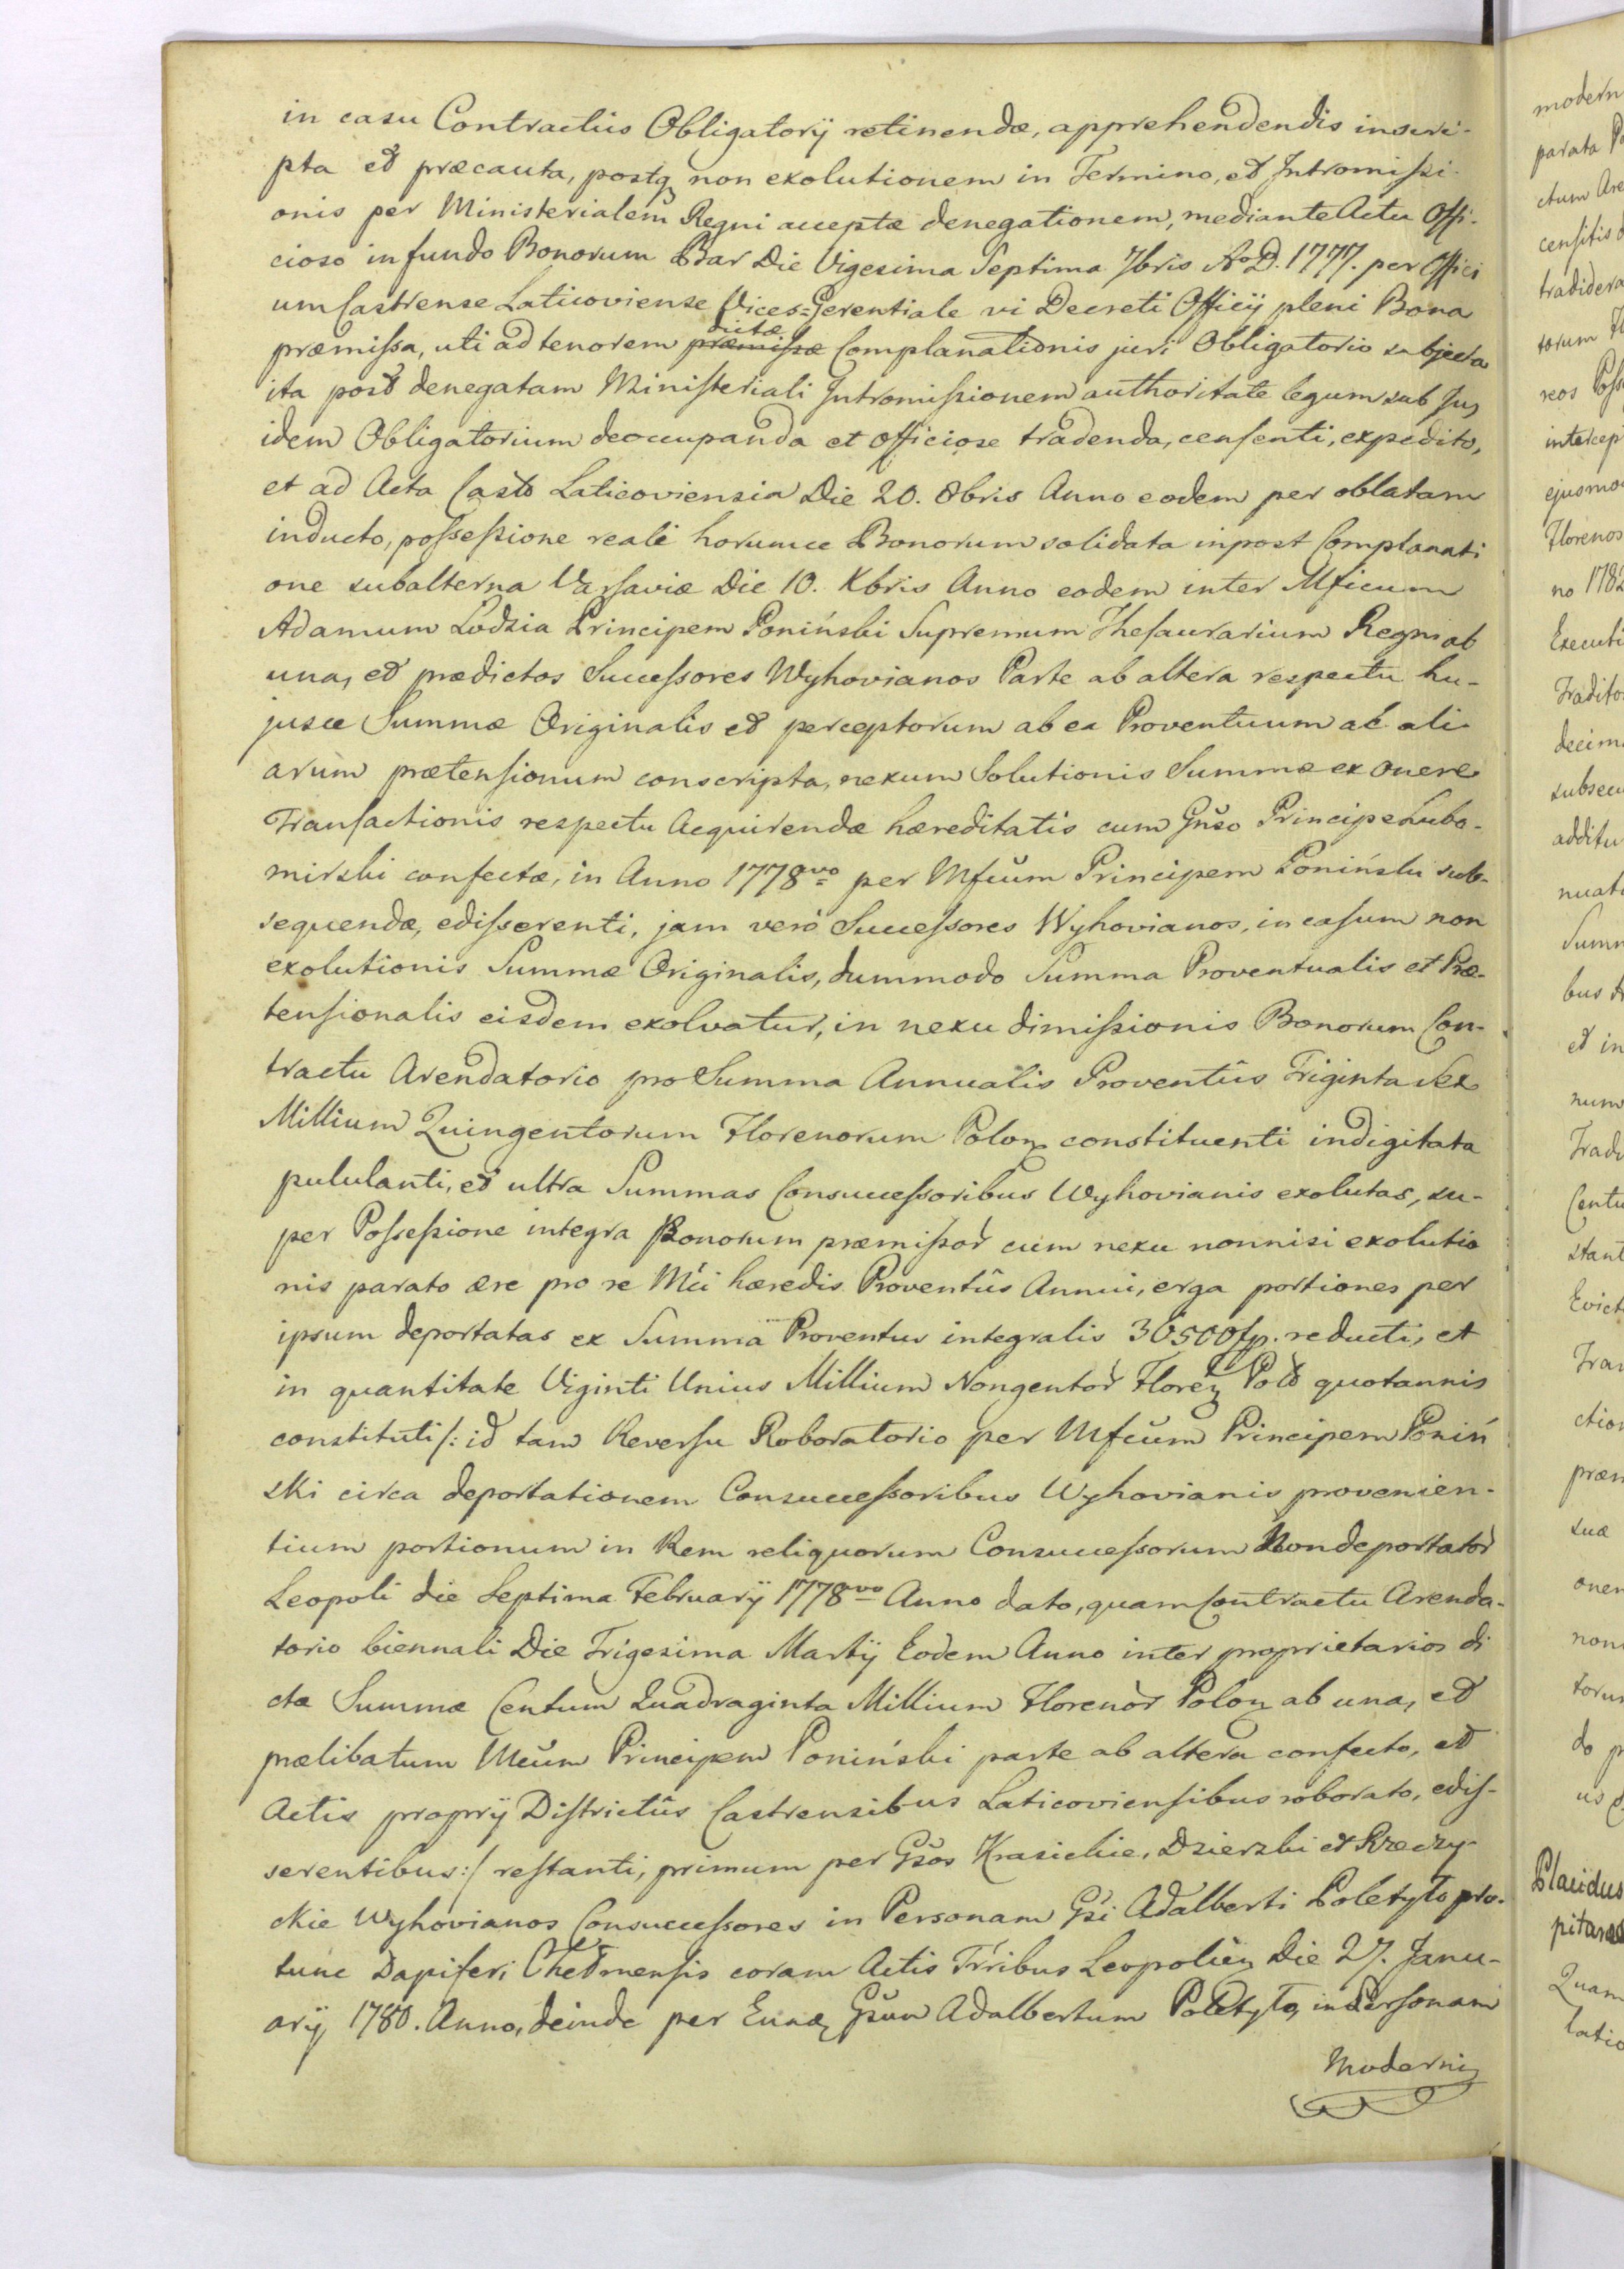 in casu Contractûs Obligatorÿ retinendæ, apprehendendis inscri-
pta et præcauta, postq non exolutionem in Termino, et Intromissi-
onis per Ministerialem Regni acceptæ denegationem, mediante Actu Offi-
cioso in fundo Bonorum Bar Die Vigesima Septima 7bris Ao D. 1777. per Offici
um Castrense Laticoviense Vices=Gerentiale vi Decreti Officÿ pleni Bona
dictæ
præmissa, uti ad tenorem præmissæ Complanationis juri Obligatorio subjecta
ita post denegatam Ministeriali Intromissionem authoritate legum sub Jus
idem Obligatorium deoccupanda et officiose tradenda, censenti, expedito,
et ad Acta Castr Laticoviensia Die 20. 8bris Anno eodem per oblatam
inducto, possessione reali horumce Bonorum solidata inpost Complanati
one subalterna Varsaviæ Die 10. Xbris Anno eodem inter Mficum
Adamum Lodzia Principem Poniński Supremum Thesaurarium Regni ab
una, et prædictos Successores Wyhovianos Parte ab altera respectu hu-
jusce Summæ Originalis et perceptorum ab ea Proventuum ac ali-
arum prætensionum conscripta, nexum Solutionis Summæ ex onere
Transactionis respectu Acquirendæ hæreditatis cum Gñso Principe Lubo-
mirski confectæ, in Anno 1778vo per Mfcum Principem Poniński sub-
sequendæ, edisserenti, jam verò Successores Wyhovianos, in casum non
exolutionis Summæ Originalis, dummodo Summa Proventualis et Præ-
tensionalis eisdem exolvatur, in nexu dimissionis Bonorum Con-
tractu Arendatorio pro Summa Annualis Proventûs Triginta Sex
Millium Quingentorum Florenorum Polon constituenti indigitata
pululanti, et ultra Summas Consuccessoribus Wyhovianis exolutas, su-
per Possessione integra Bonorum præmissor cum nexu nonnisi exolutio
nis parato ære pro re Mci hæredis Proventûs Annui, erga portiones per
ipsum deportatas ex Summa Proventus integralis 36500 fp. reducti, et
in quantitate Viginti Unius Millium Nongentor Floren Pol quotannis
constituti /: id tam Reversu Roboratorio per Mfcum Principem Poniń
ski circa deportationem Consuccessoribus Wyhovianis provenien-
tium portionum in Rem reliquorum Consuccessorum Nondeportator
Leopoli die Septima Februarÿ 1778vo Anno dato, quam Contractu Arenda-
torio biennali Die Trigesima Martÿ Eodem Anno inter proprietarios di
ctæ Summæ Centum Quadraginta Millium Florenor Polon ab una, et
prælibatum Mcum Principem Poniński parte ab altera confecto, et
Actis proprÿ Districtûs Castrensibus Laticoviensibus roborato, edis-
serentibus :/ restanti, primum per Gsos Krasickie, Dzierzki et Rzeczy-
ckie Wyhovianos Consuccessores in Personam Gsi Adalberti Poletyło pro-
tunc Dapiferi Chełmensis coram Actis Tribus Leopolien Die 27. Janu-
arÿ 1780. Anno, deinde per Eund Gsum Adalbertum Poletyło, in Personam
Moderni
modern
parata
ctum Are
censitis
tradidera
torum
reos Poss
intercep
ejusmo
Florenos
no 1782
Executi
Tradito
decim
subsecu
additu
nuat
Summ
bus
et in
num
Tradi
Centu
stant
Evict
Tran
ction
præm
suæ
oner
non
torum
do
us
Placidus
pitane
Quam
latio